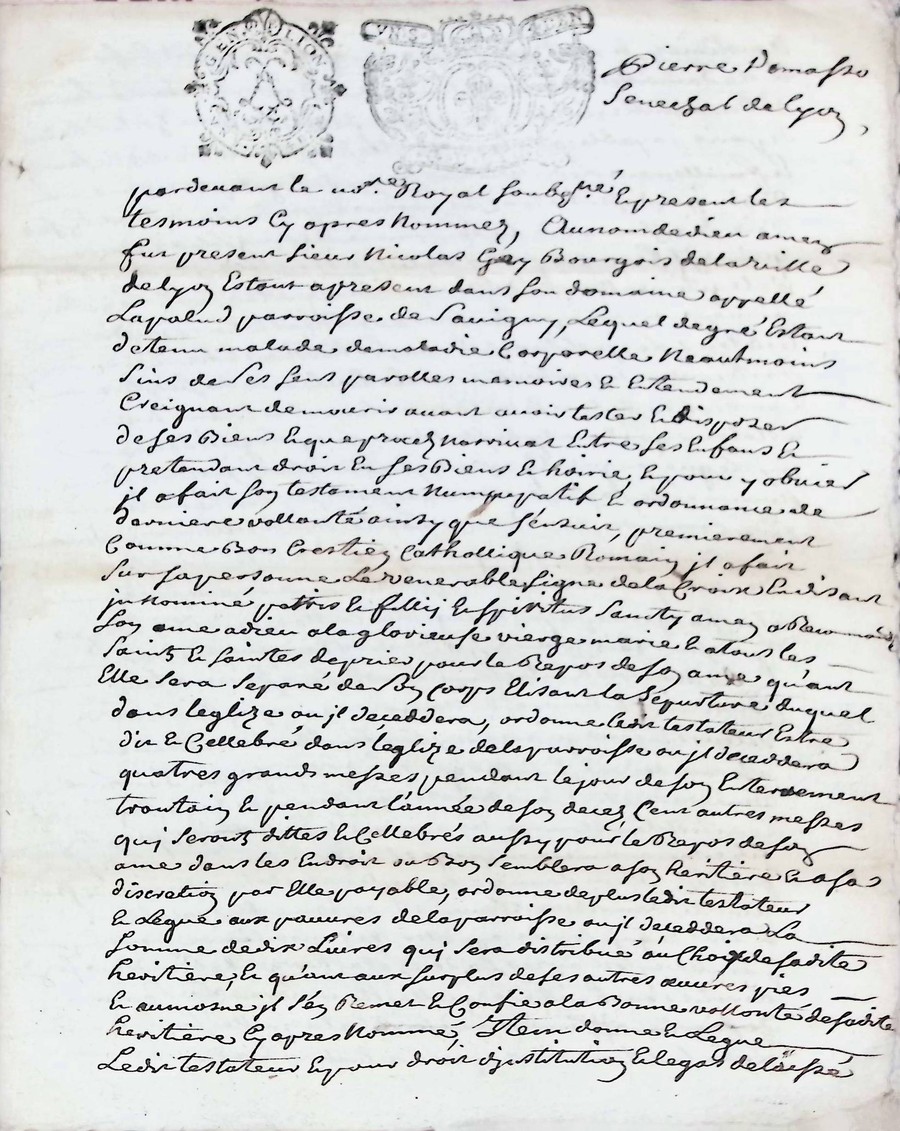 GEN. DE LION
Pierre Pomasso
Senechal de Lyon,
pardevant le no.re Royal soubz.né & present les
tesmoins Cy apres Nommez, Au nom de dieu amen
fut present sieur Nicolas Gay Bourgois de la ville
de lyon Estant apresent dans son domaine appellé
Lapalud parroisse de Savigny, Lequel de gré Estant
detenu malade de maladie Corporelle Neautmoins
sins de ses sens parolles memoires & Entendement
Creignant de mourir avant avoir tester & disposer
de ses Biens & que procez narrivat Entre ses Enfans &
pretendant droit En ses Biens & hoirie, & pour y obvier
jl a fait son testament Numcupatif & ordonnance de
derniere vollonté ainsy que sensuit, premierement
Comme Bon Crestien Cathollique Romain jl a fait
sur sa personne Le venerable signe de la Croix En disant
jn Nominé patris & fillij & spiritus sancty amen a Recommandé
son ame a dieu a la glorieuse vierge marie & a tous les
saints & saintes de prier pour le Repos de son ame qu'ant
Elle sera separé de son Corps Elisant la sepurture duquel
dans leglize ou jl deceddera, ordonne ledit testateur Estre
dit & Cellebré dans leglize de la parroisse ou jl deceddera
quatres grands messes pendant le jour de son Enterrement
trantain & pendant l'année de son decez Cent autres messes
quj seront dittes & Cellebrés aussy pour le Repos de son
ame dans les Endroit ou Bon semblera a son heritiere & a sa
discration par Elle payable, ordonne de plus ledit testateur
& Legue aux pauvres de la parroisse ou jl deceddera La
somme de dix Livres quj sera distribué au Choix de sadite
heritiere, & qu'ant aux surplus de ses autres œuvres pies
& aumosne jl s'en Remet & Confie a la Bonne vollonté de sadite
heritiere Cy apres Nommé, Item donne & Legue
Ledit testateur & pour droit d'justitution & legat delaissé